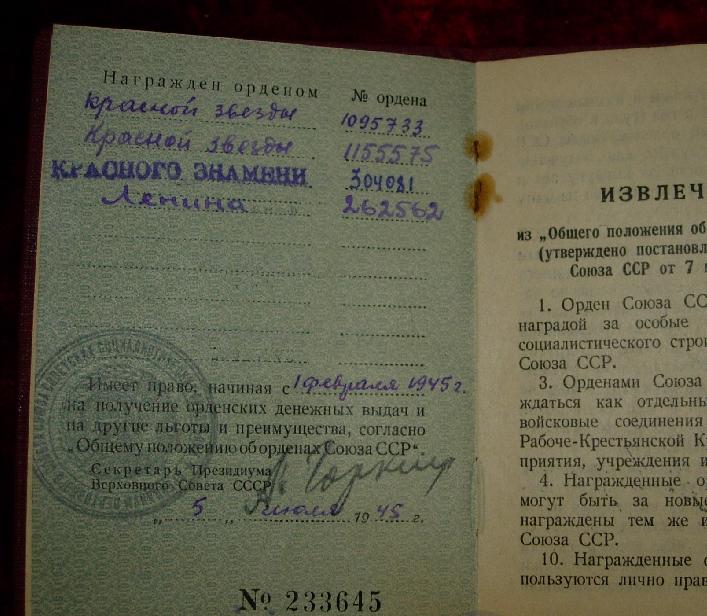 Награжден орденом № ордена
Красной звезды 1095733
Красной звезды 1155575
КРАСНОГО ЗНАМЕНИ 304081
Ленина 262562
Имеет право, начиная с 1 февраля 1945 г.
на получение орденских денежных выдач и
на другие льготы и преимущества, согласно
„Общему положению об орденах Союза ССР“.
Секретарь Президиума
Верховного Совета СССР
„ 5 „ июля 1945 г.
№ 233645
ИЗВЛЕЧ
из „Общего положения об
(утверждено постановл
Союза ССР от 7
1. Орден Союза СС
наградой за особые
социалистического строи
Союза ССР.
3. Орденами Союза
ждаться как отдельны
войсковые соединения
Рабоче-Крестьянской К
приятия, учреждения и
4. Награжденные о
могут быть за новы
награждены тем же и
Союза ССР.
10. Награжденные
пользуются лично прав